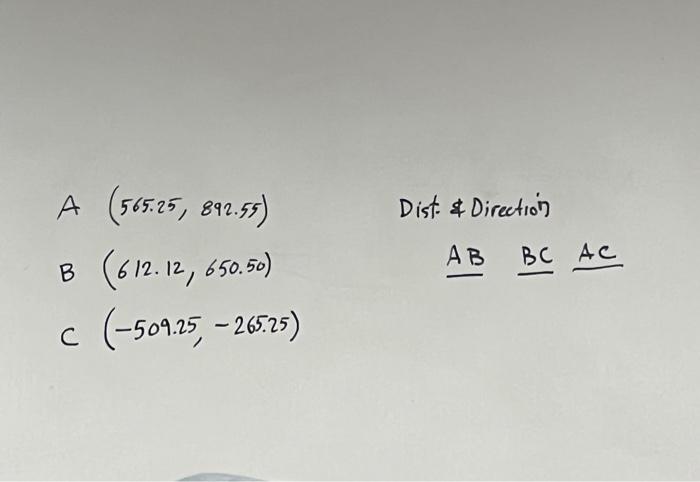 A (565.25, 892.55)
B (612.12, 650.50)
C (-509.25, -265.25)
Dist. & Direction
AB BC AC